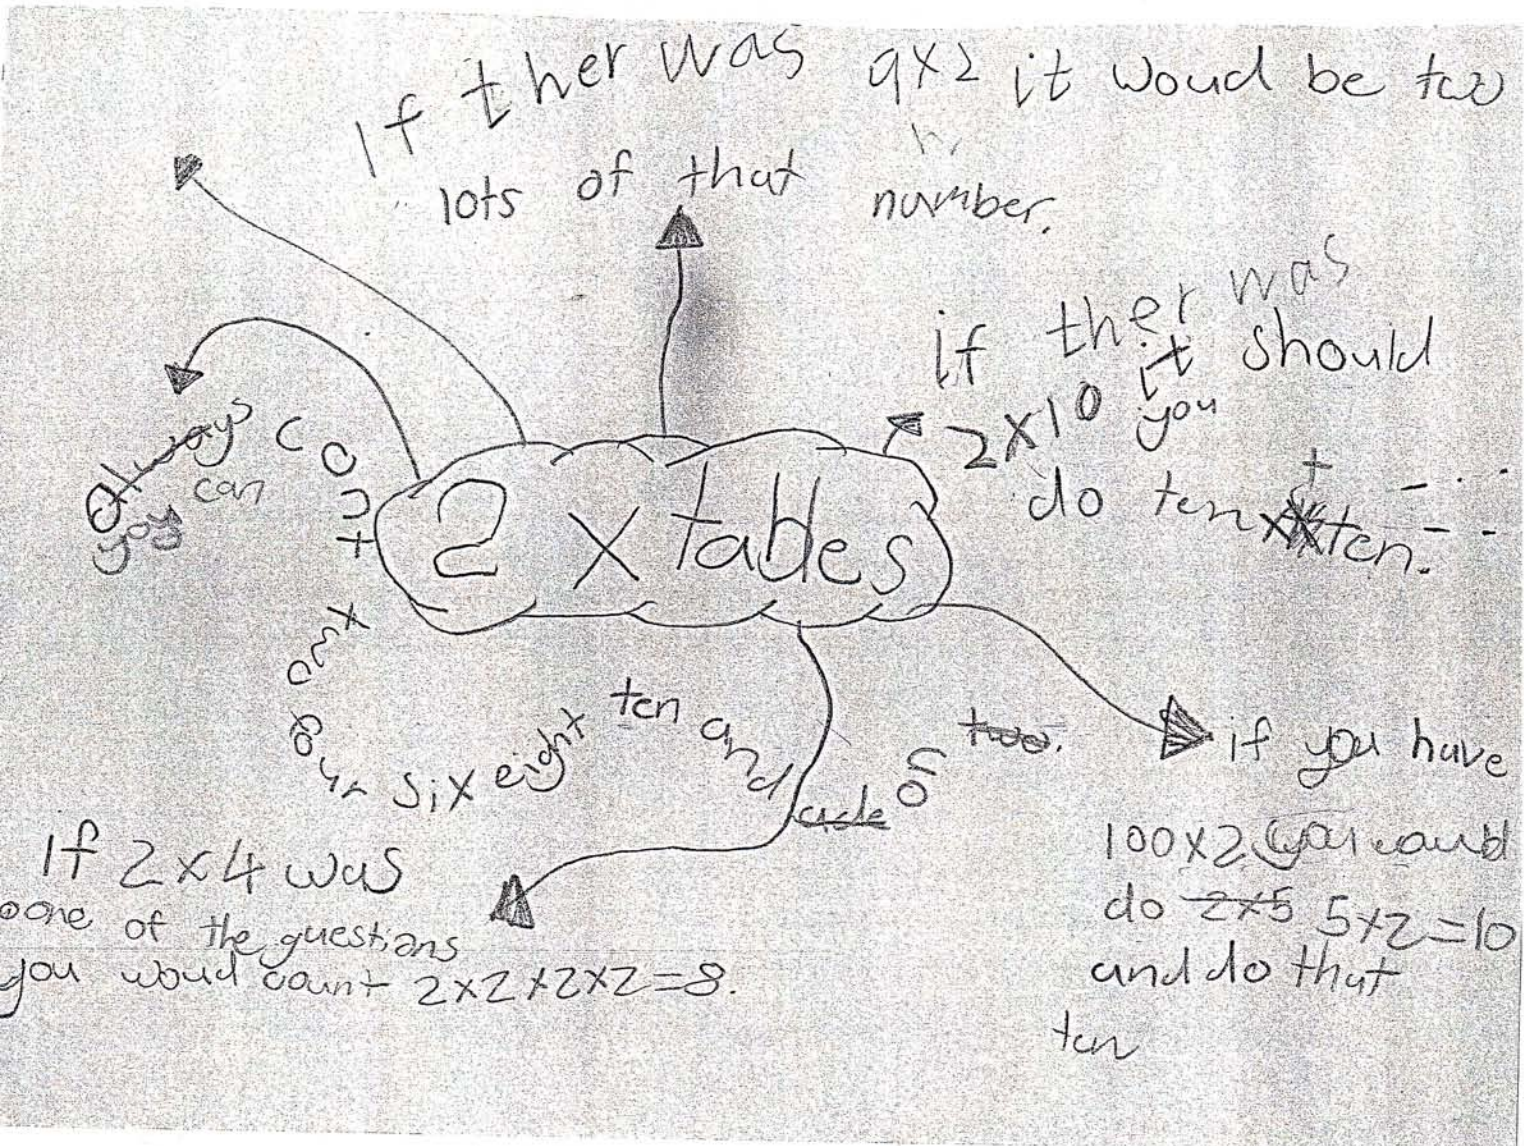 If ther was 9x2 it woud be two
lots of that number.
if ther was
2x10 it should
you
do ten + ten.
2 x tables
always
you can
count
two
four six eight ten and on
two.
if you have
100x2 you woud
do 2x5 5x2=10
and do that
ten
If 2x4 was
one of the questians
you woud count 2x2x2x2=8.